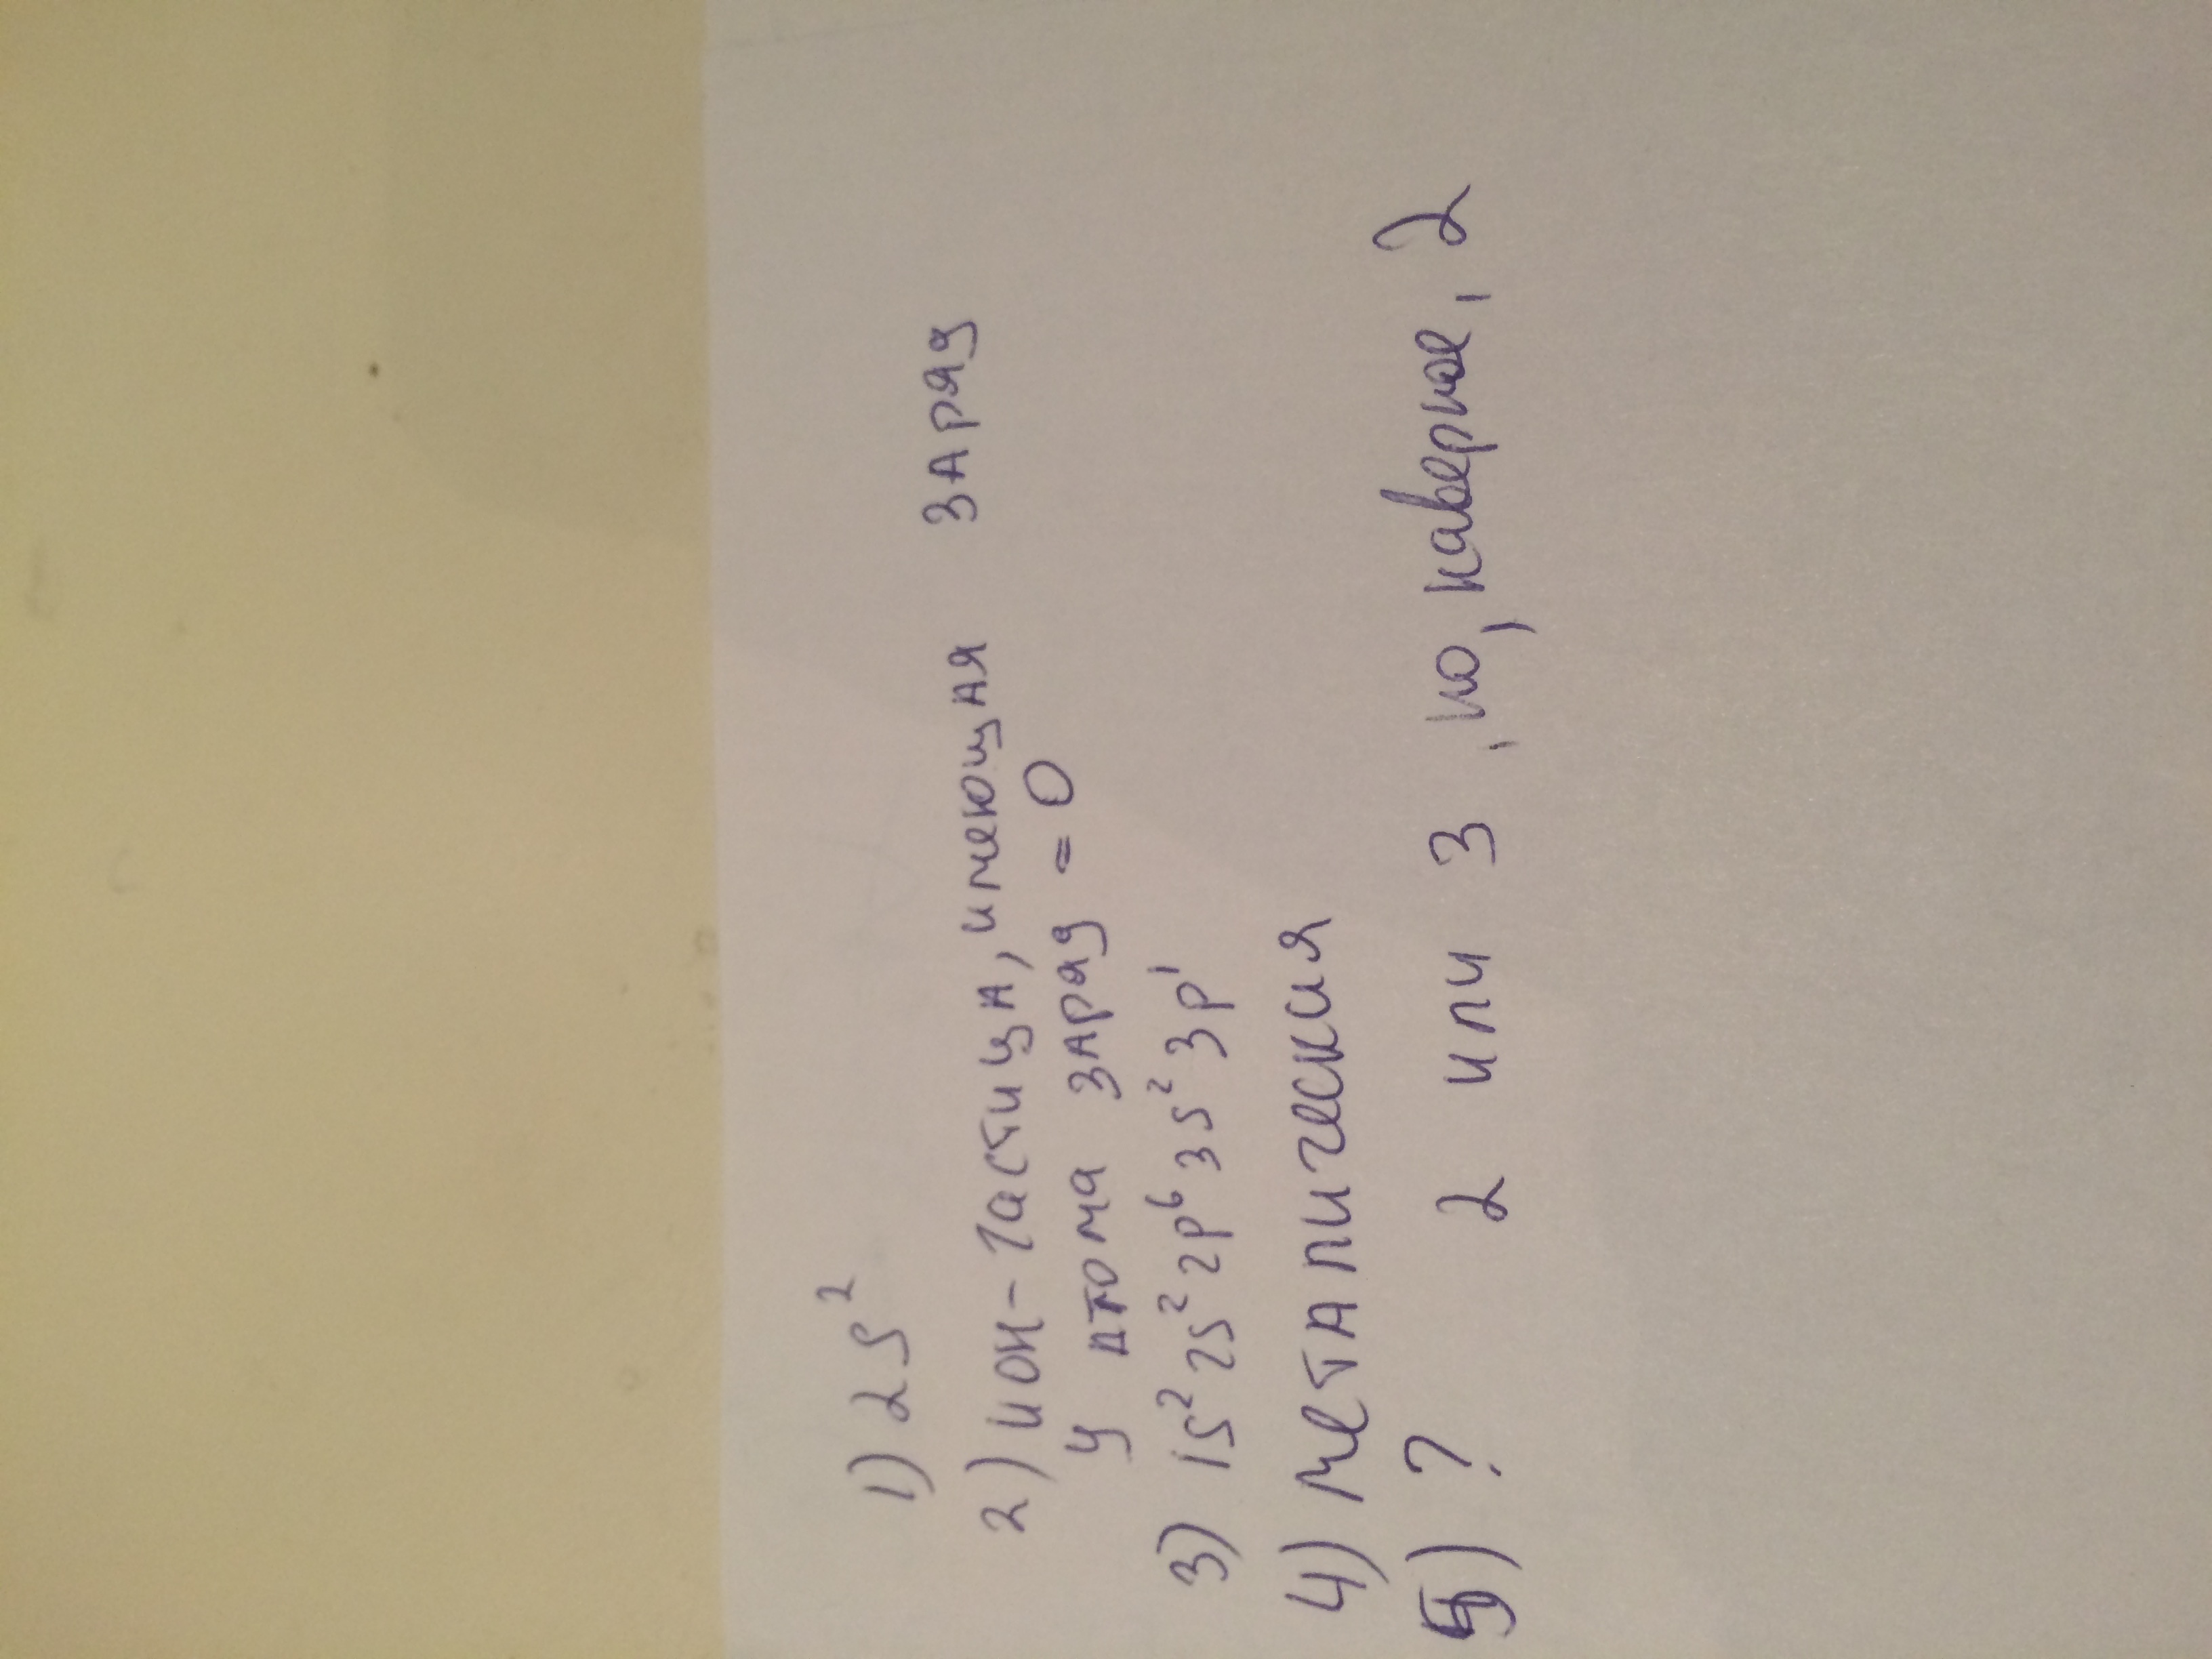 1) 2S²
2) ион - частица, имеющая заряд
у атома заряд = 0
3) 1s² 2s² 2p⁶ 3s² 3p¹
4) металическая
5) ? 2 или 3, но, наверное, 2